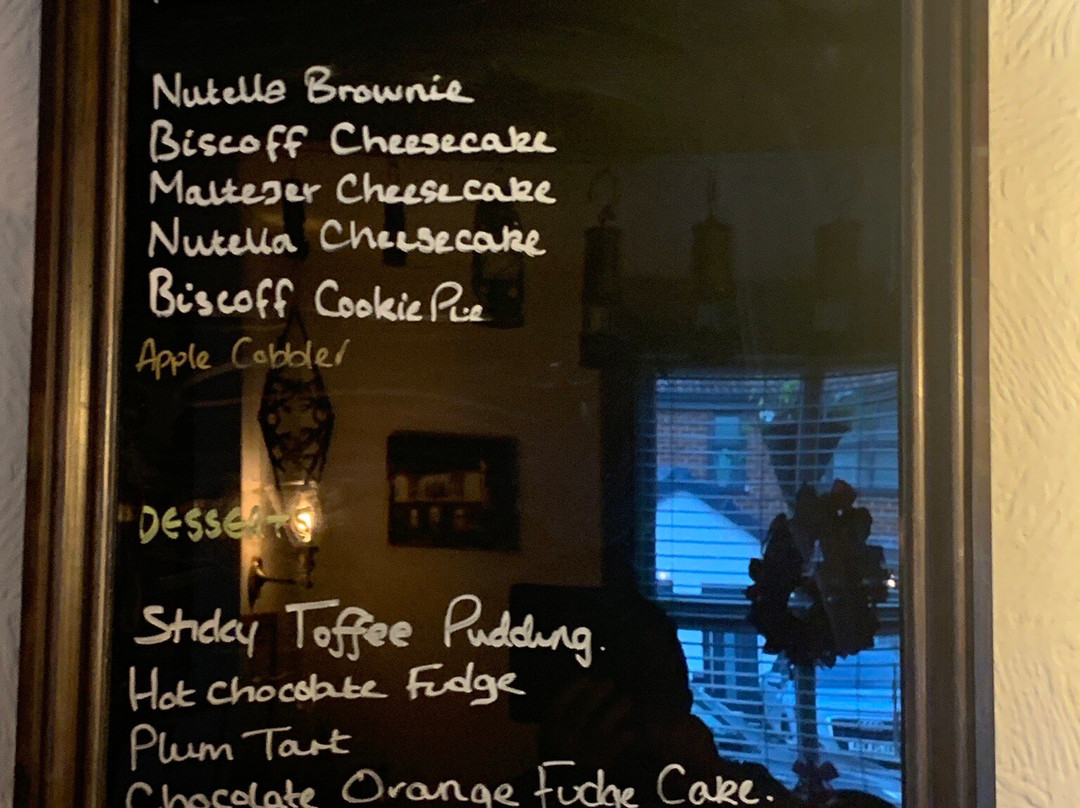 Nutella Brownie
Biscoff Cheesecake
Malteser Cheesecake
Nutella Cheesecake
Biscoff Cookie Pie
Apple Cobbler
DESSERTS
Sticky Toffee Pudding.
Hot chocolate Fudge
Plum Tart
Chocolate Orange Fudge Cake.